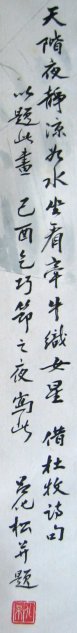 天階夜静涼如水坐看牽牛織女星 借杜牧詩句
以題此畫 己酉乞巧節之夜寫此
吕化松并題